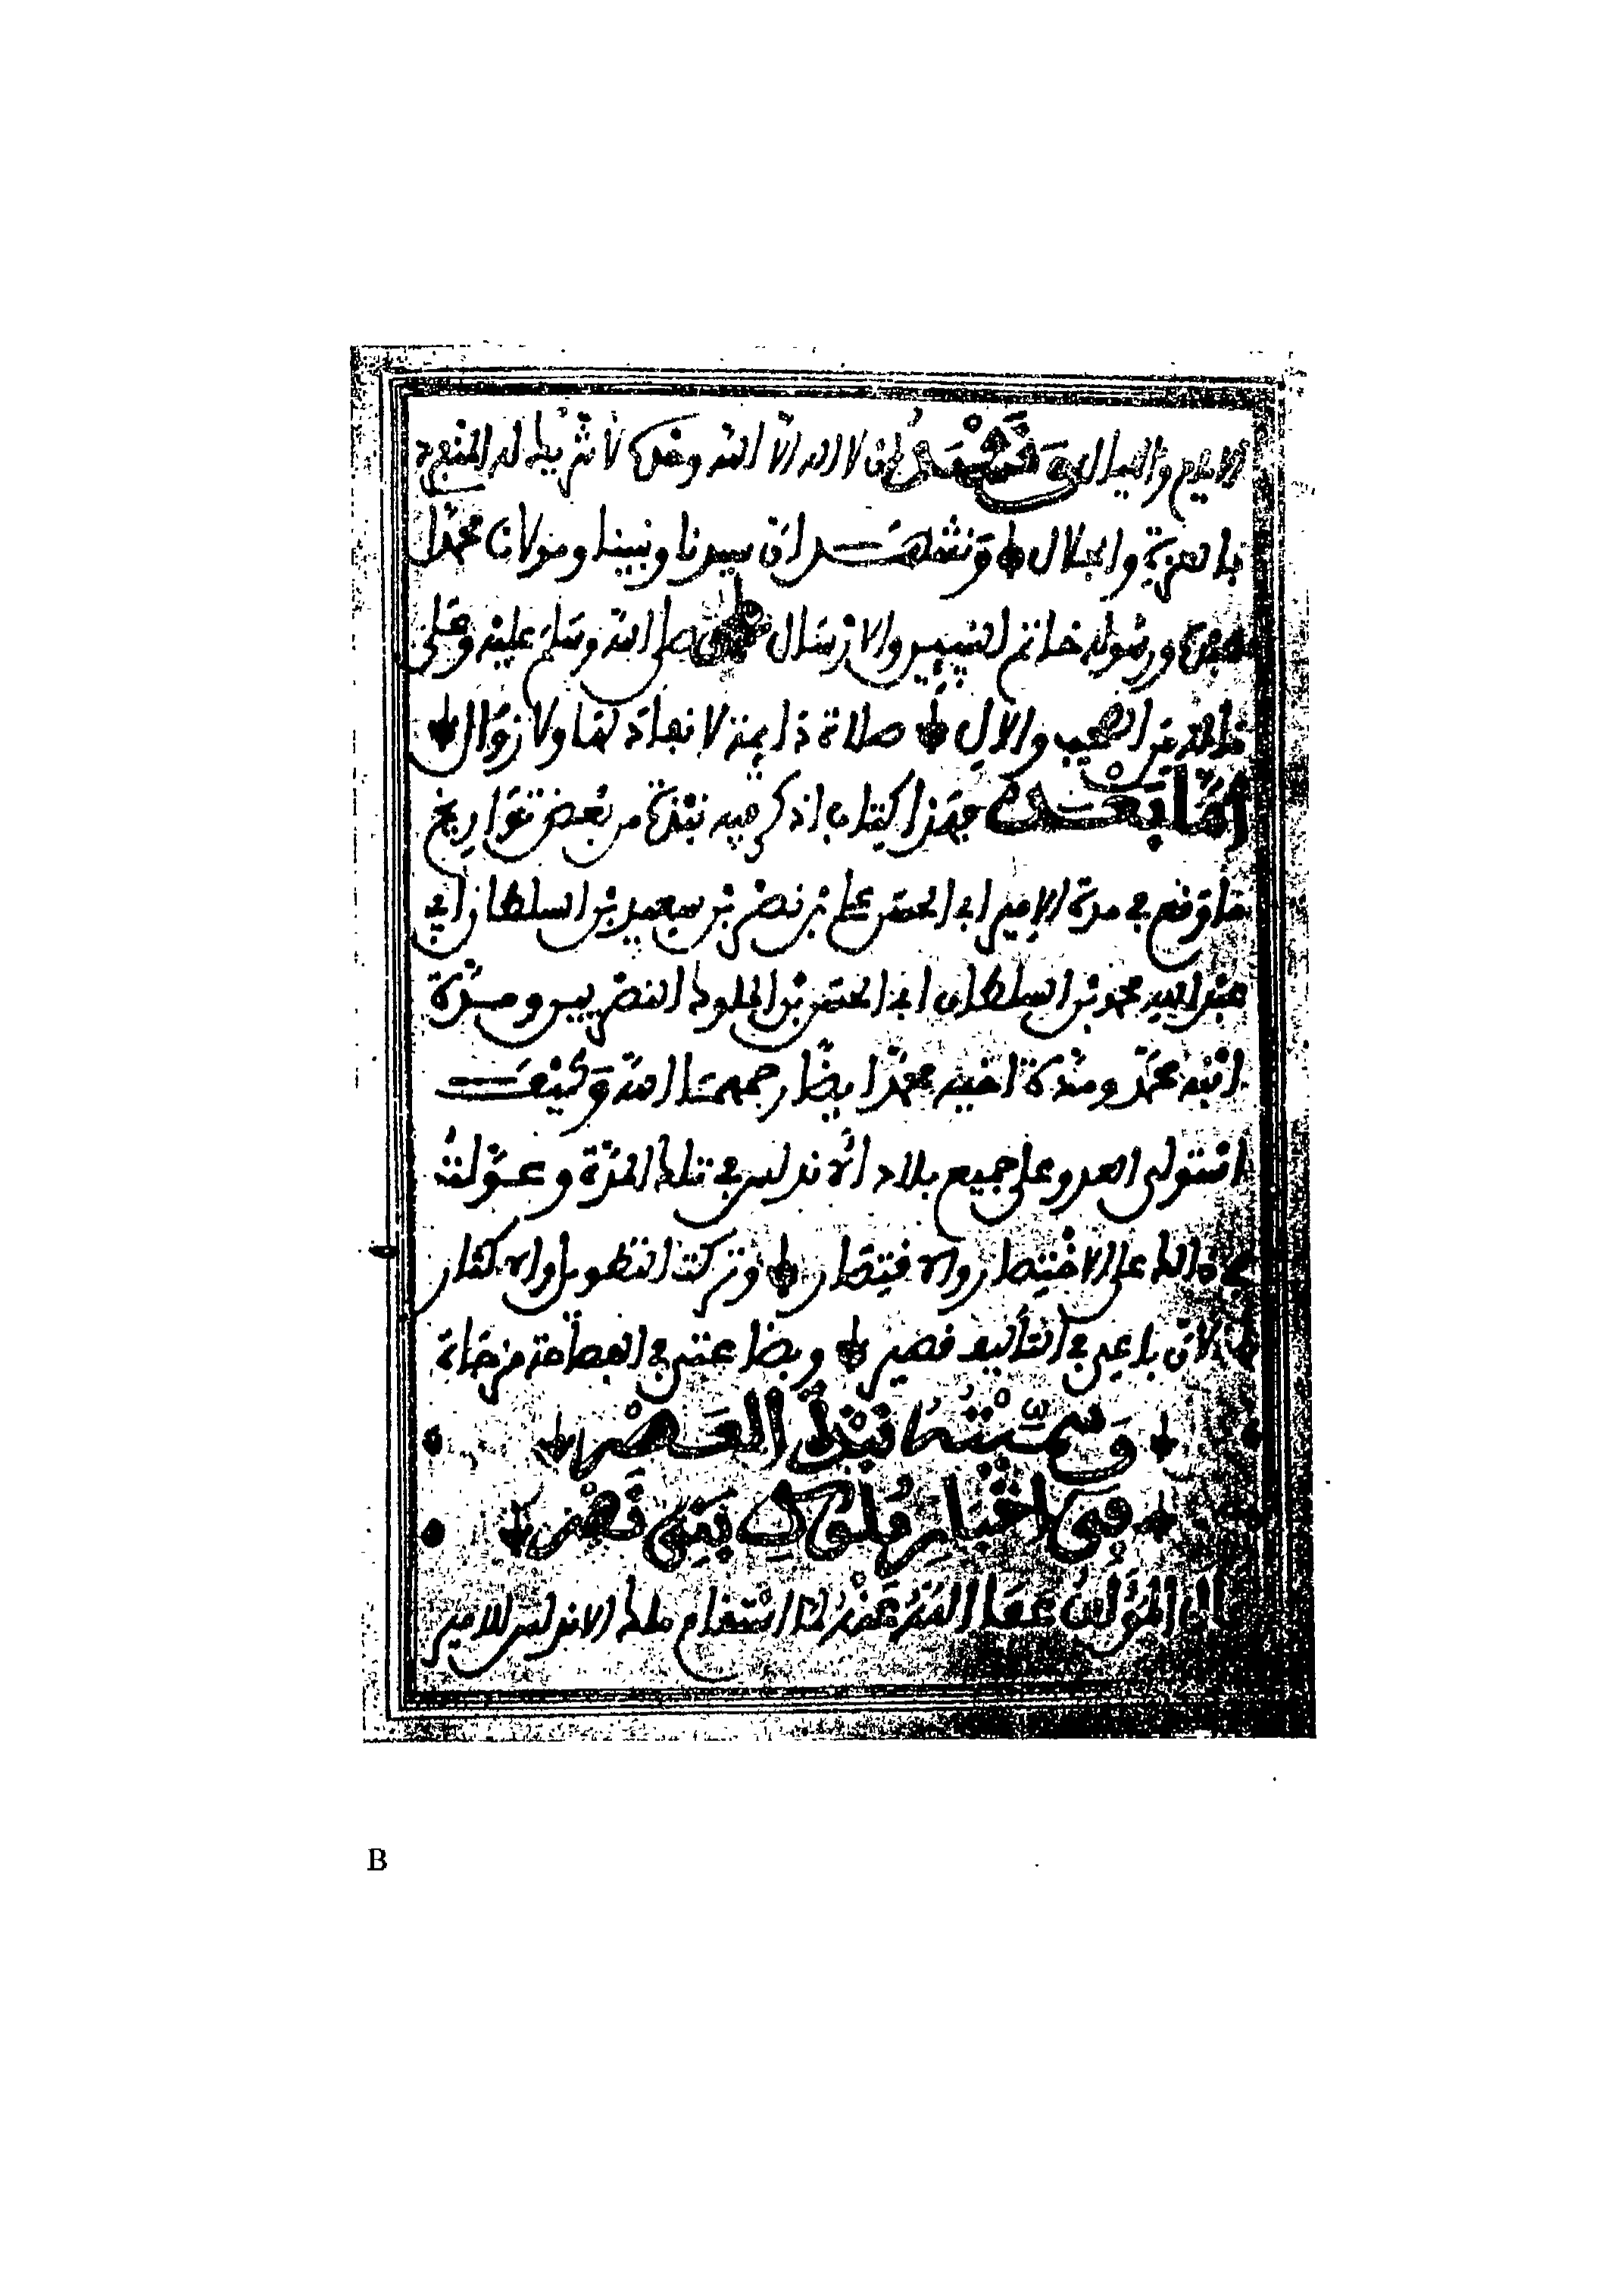 الايام والليال ونشهد ان لا اله الا الله وحده لا شريك له المنفرد
بالعزة والجلال ونشهد ان سيدنا ونبينا ومولانا محمدا
عبده ورسوله خاتم النبيين والارسال صلى الله وسلم عليه وعلى
الصحب والال صلاة دايمة لا نفاد لها ولا زوال
اما بعد فهذا كتاب اذكر فيه نبذة من بعض تواريخ
ما وقع في مدة الامير ابي الحسن علي بن نصر بن سعد بن السلطان ابي
عبد الله محمد بن السلطان ابي الحسن بن الملوك النصريين ومدة
ابنه محمد ومدة اخيه محمد ايضا رحمهم الله وكيف
استولى العدو على جميع بلاد الاندلس في تلك المدة وعولت
في ذالك على الاختصار والاقتصار وتركت التطويل والاكثار
لان باعي في التأليف قصير وبضاعتي في الفصاحة مزجاة
وسميته نبذة العصر
في اخبار ملوك بني نصر
قال المؤلف عفا الله عنه لما استقام ملك الاندلس للامير
B